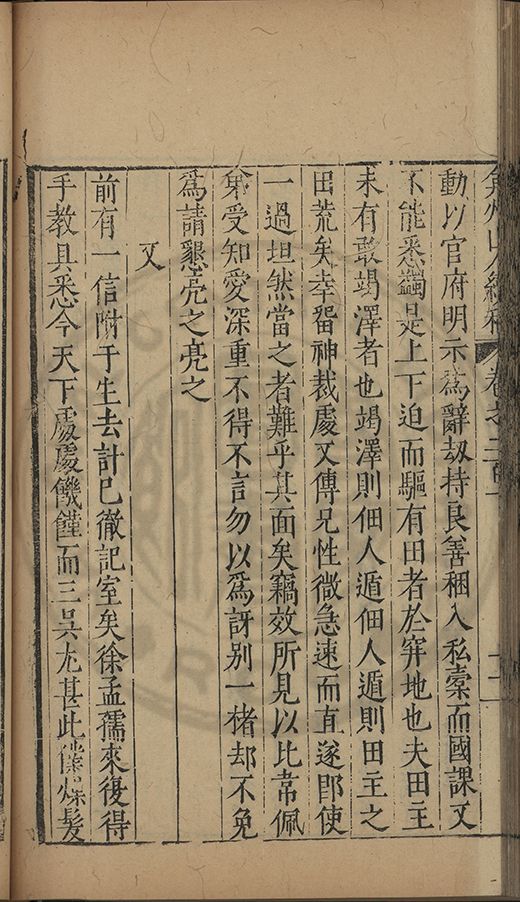 弇州山人續稿 卷之二百一 十一
動以官府明示爲辭刼持良善稛入私橐而國課又
不能悉蠲是上下迫而驅有田者於穽地也夫田主
未有敢竭澤者也竭澤則佃人遁佃人遁則田主之
田荒矣幸畱神裁處又傳兄性微急速而直遂卽使
一過坦然當之者難乎其面矣竊效所見以比韋佩
弟受知愛深重不得不言勿以爲訝别一楮却不免
爲請懇亮之亮之
又
前有一信附于生去計已徹記室矣徐孟孺來復得
手教具悉今天下處處饑饉而三吳尤甚此僕燥髮